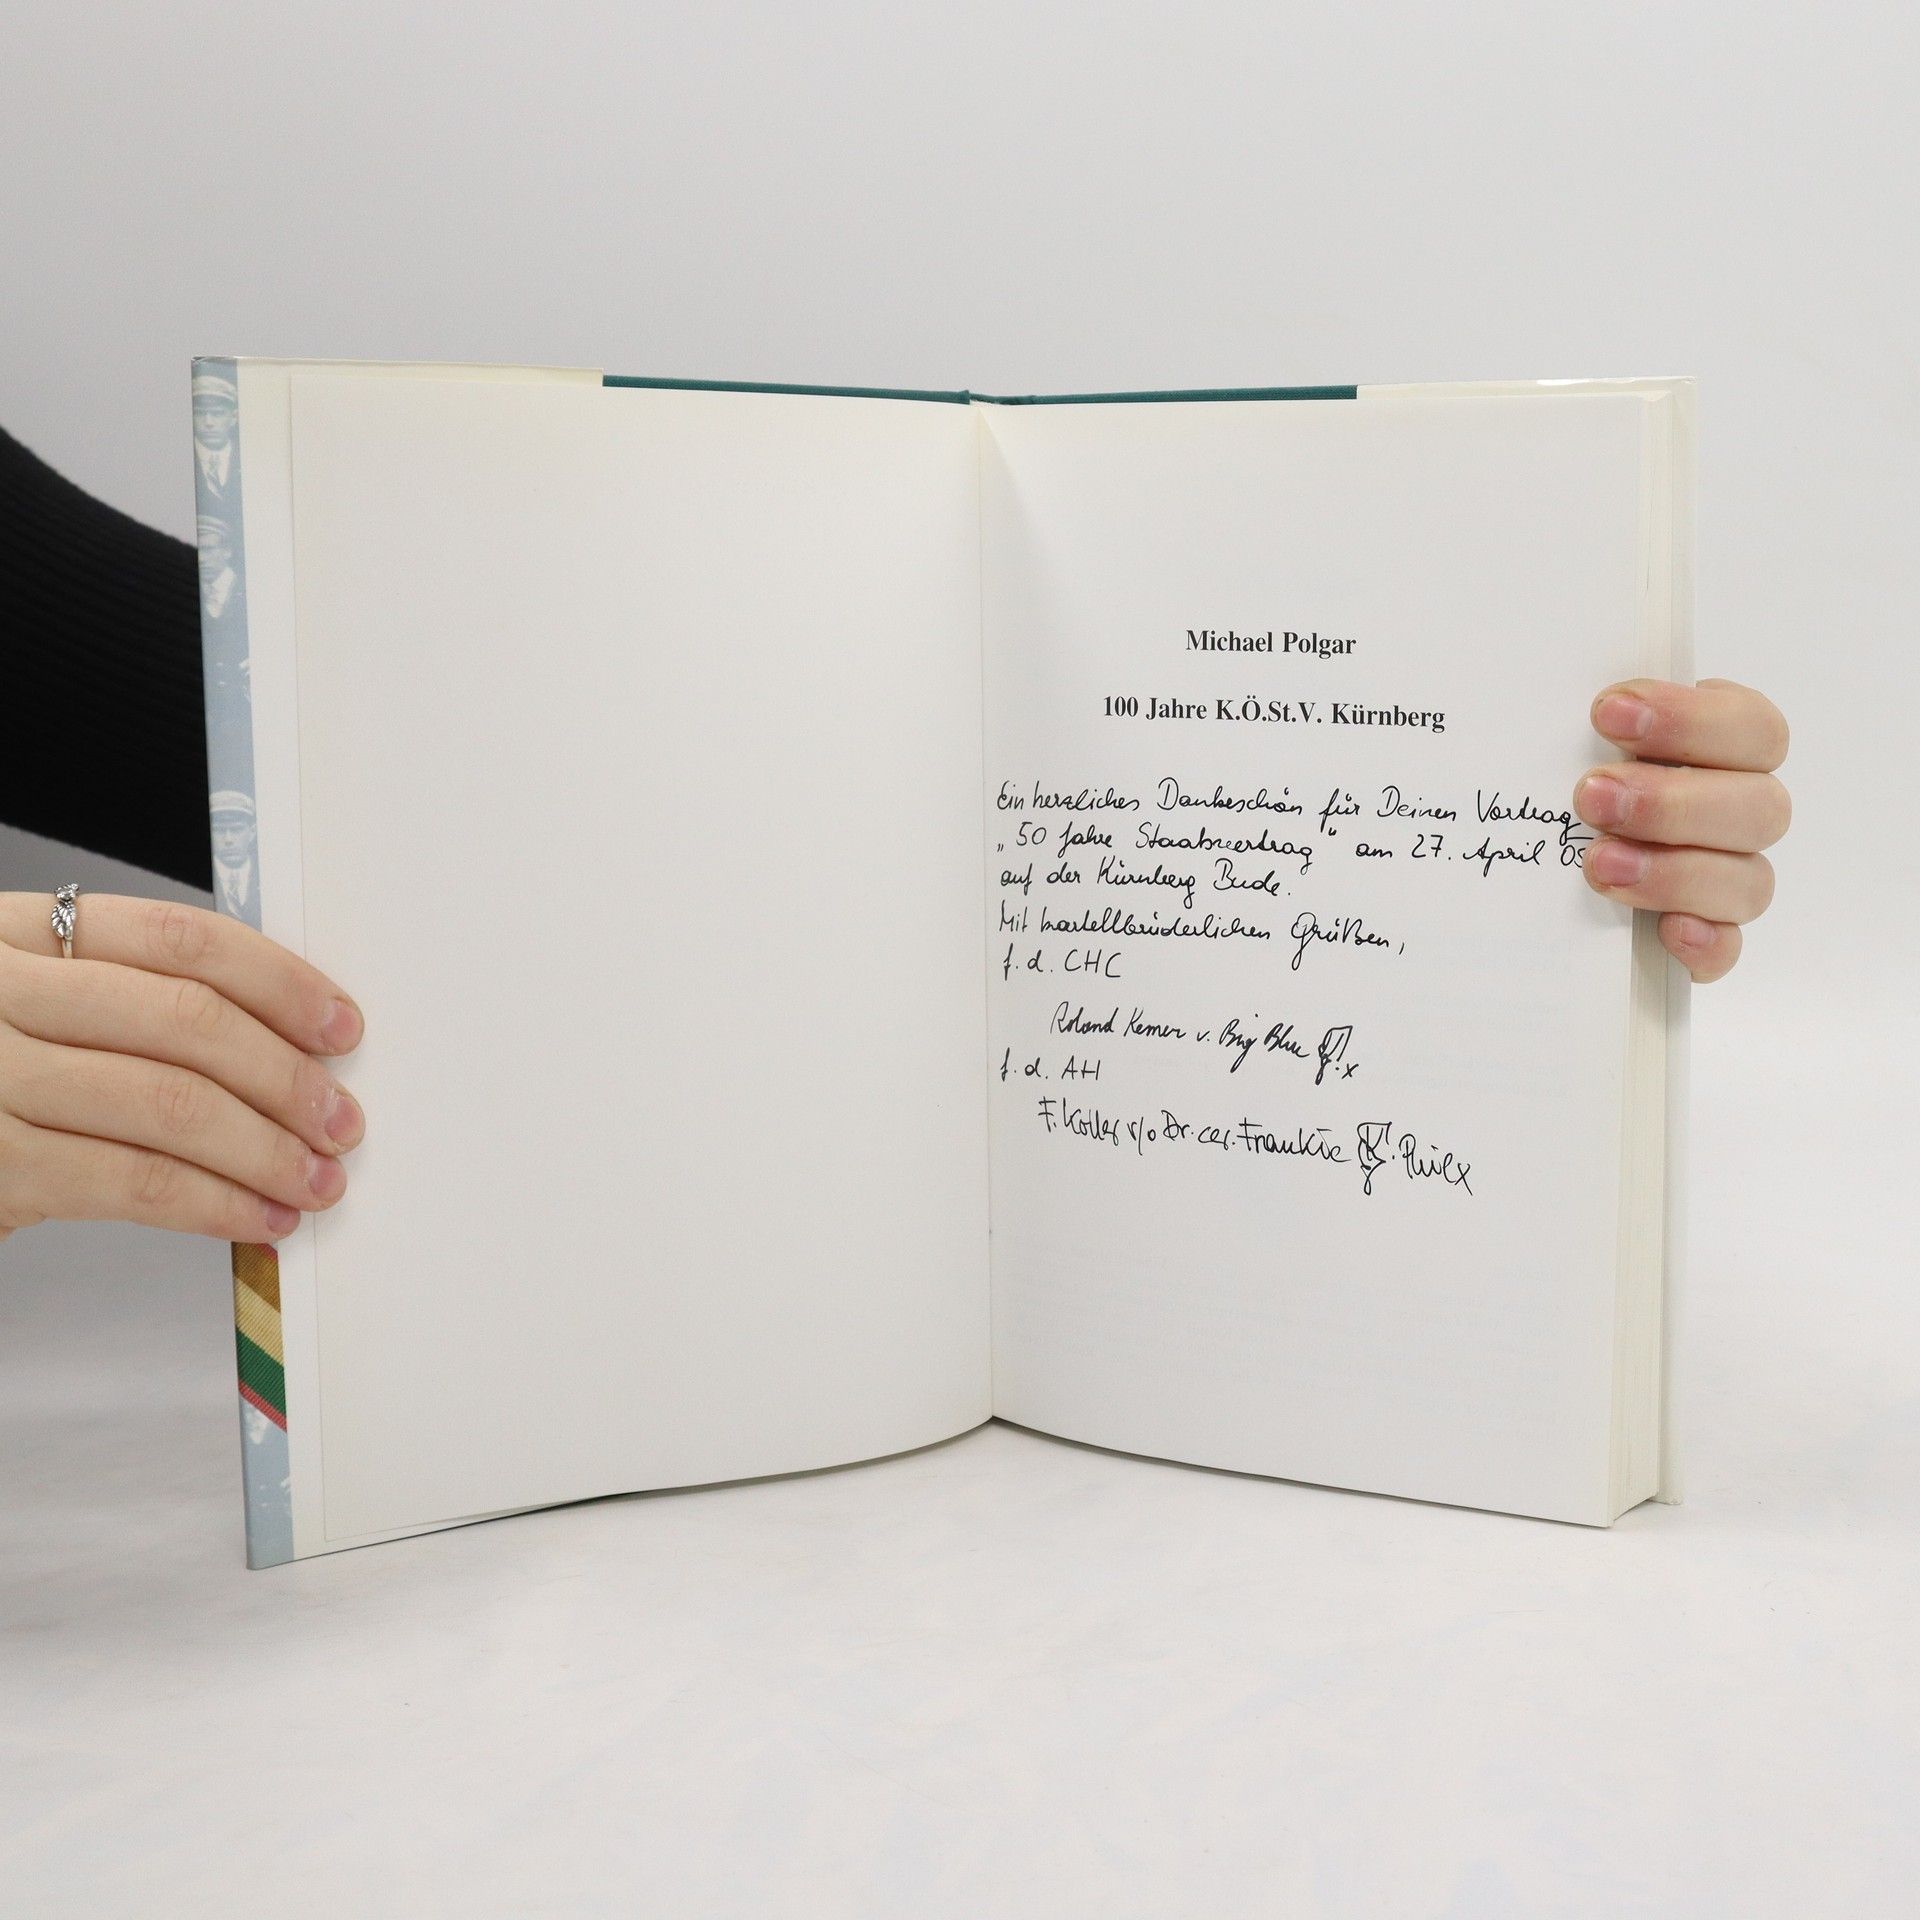 Michael Polgar
100 Jahre K.Ö.St.V. Kürnberg
Ein herzliches Dankeschön für Deinen Vortrag
„50 Jahre Staatsvertrag" am 27. April 05
auf der Kürnberg Bude.
Mit kartellbrüderlichen Grüßen,
f. d. CHC
Roland Kemer v. Big Blue
f. d. AH
F. Koller v/o Dr. cer. Frankie